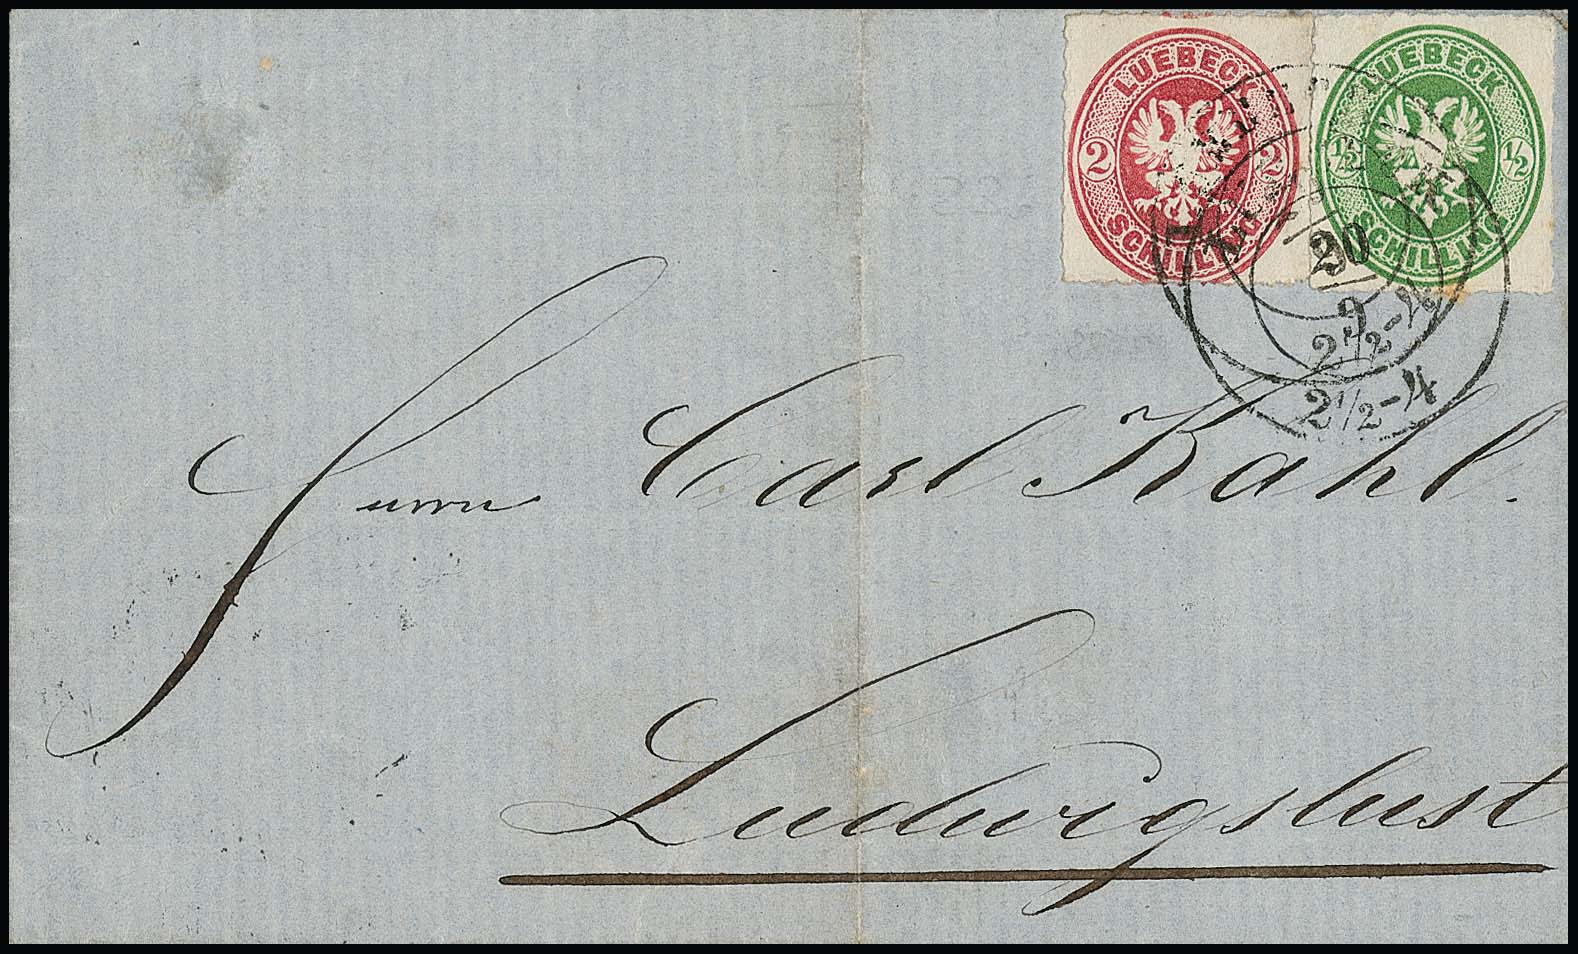 LUEBECK
2 2
SCHILLING
LUEBECK
½ ½
SCHILLING
20
9
2½-4
2½-4
Herrn Carl Kahl.
Ludwigslust